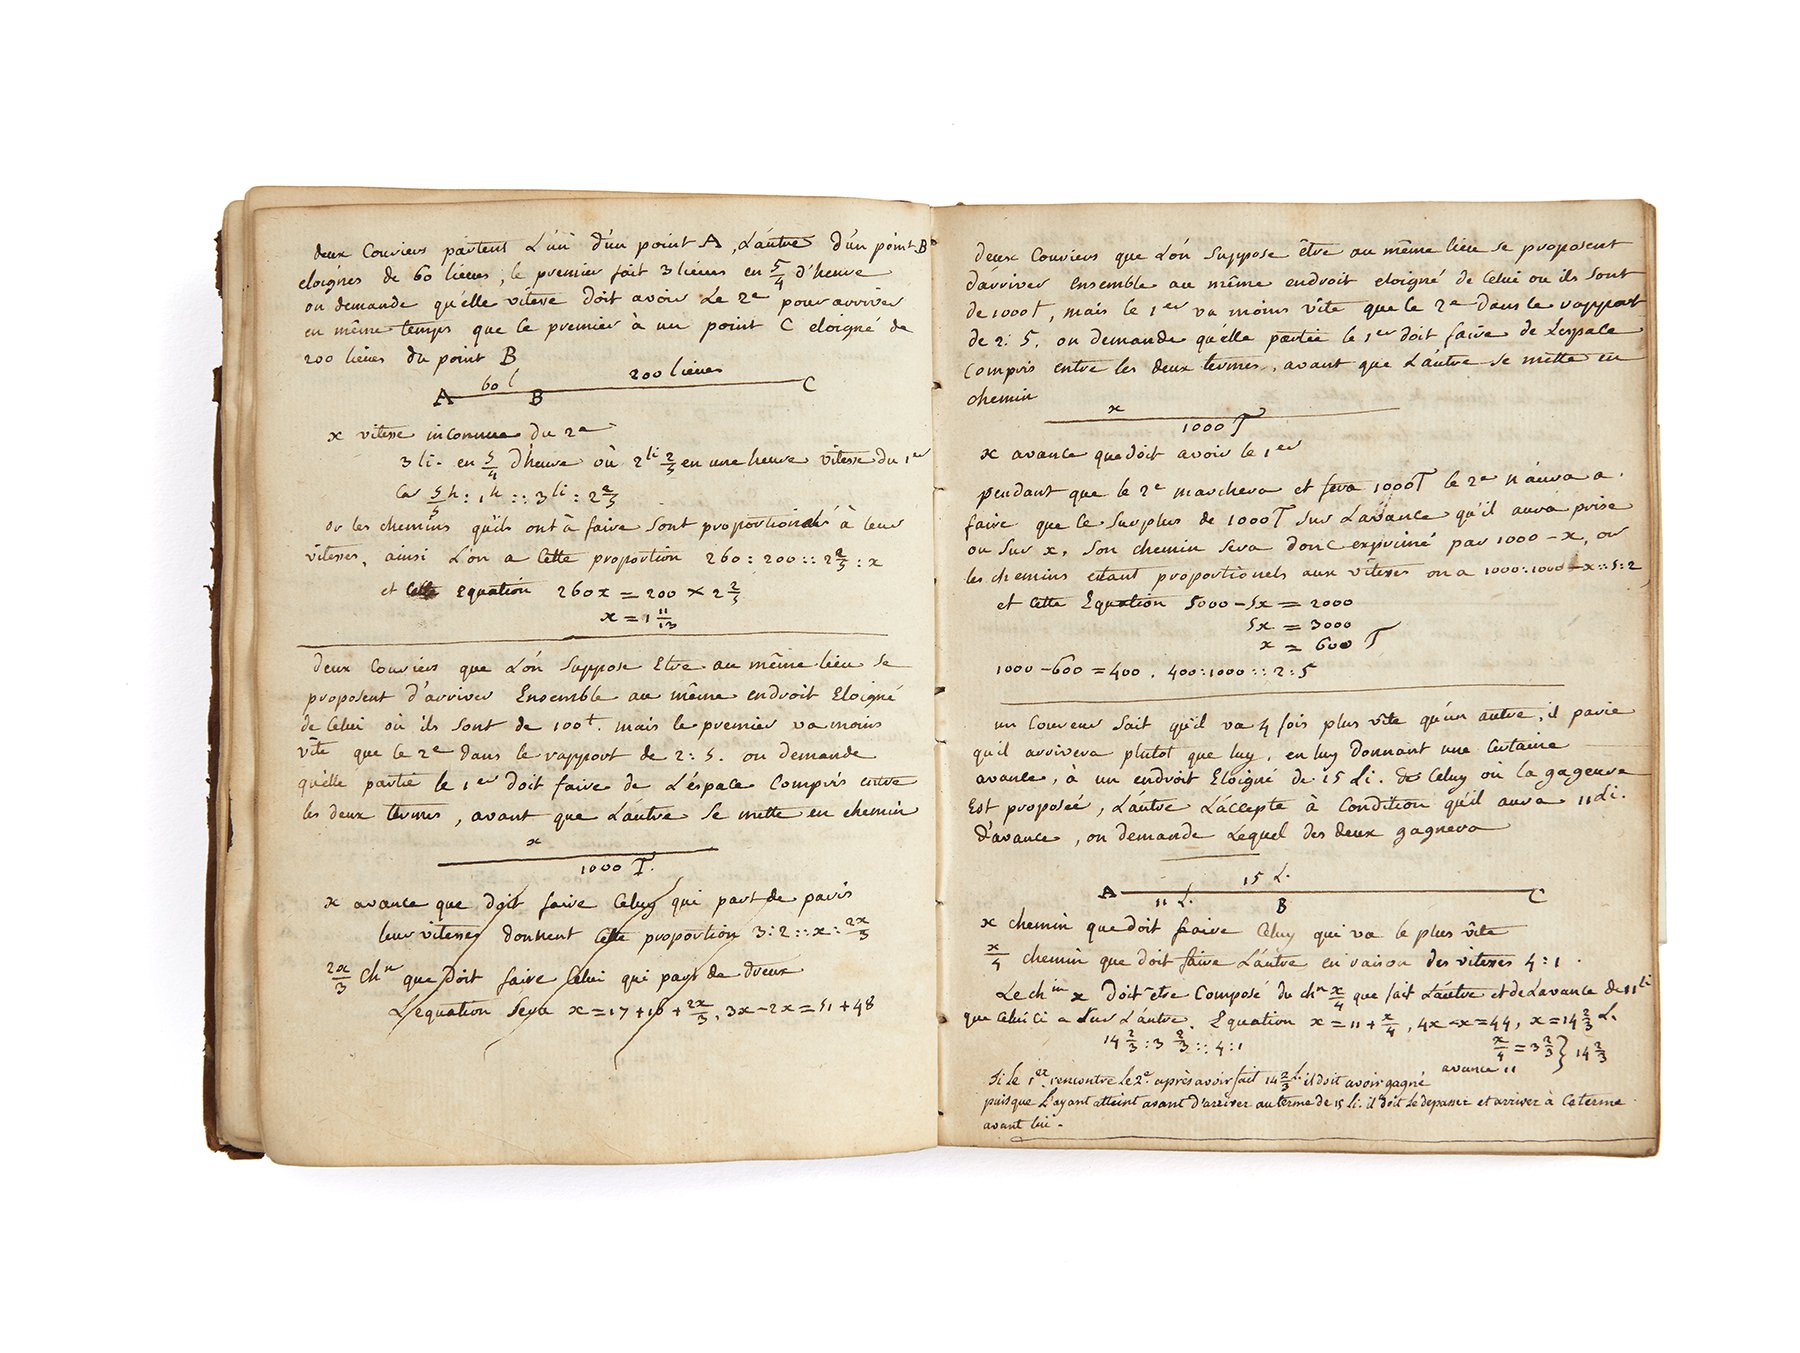 deux Couriers partent L'un d'un point A, L'autre d'un point B
eloignés de 60 lieues, le premier fait 3 lieues en 5/4 d'heure
on demande qu'elle vitesse doit avoir Le 2e pour arriver
en même temps que le premier à un point C eloigné de
200 lieues du point B
60 l 200 lieues
A B C
x vitesse inconnue du 2e
3 li. en 5/4 d'heure où 2 li 2/5 en une heure vitesse du 1er
Car 5/5 h : 1 h :: 3 li : 2 2/5
or les chemins qu'ils ont à faire sont proportionels à leur
vitesses, ainsi L'on a Cette proportion 260 : 200 :: 2 2/5 : x
et Cette Equation 260x = 200 × 2 2/5
x = 1 11/13
deux Couriers que L'on Suppose Etre au même lieu se
proposent d'arriver Ensemble au même endroit Eloigné
de Celui où ils sont de 100t. mais le premier va moins
vîte que le 2e dans le rapport de 2 : 5. on demande
qu'elle partie le 1er doit faire de L'éspace Compris entre
les deux termes, avant que L'autre se mette en chemin
x
1000 T.
x avance que doit faire Celuy qui part de paris
leur vitesses donnent Cette proportion 3 : 2 :: x : 2x/3
2x/3 Chn que doit faire Celui qui part de dreux
L'equation Sera x = 17 + 16 + 2x/3, 3x - 2x = 51 + 48
deux Couriers que L'on Suppose être au même lieu se proposent
d'arriver ensemble au même endroit eloigné de Celui ou ils sont
de 1000 T, mais le 1er va moins vîte que le 2e dans le rapport
de 2 : 5. on demande qu'elle partie le 1er doit faire de L'espace
Compris entre les deux termes, avant que L'autre se mette en
chemin
x
1000 T
x avance que doit avoir le 1er
pendant que le 2e marchera et fera 1000 T le 2e n'aura a
faire que le Surplus de 1000 T sur L'avance qu'il aura prise
ou sur x. Son chemin sera donc exprimé par 1000 - x, or
les chemins etant proportionels aux vitesses on a 1000 : 1000 - x :: 5 : 2
et Cette Equation 5000 - 5x = 2000
5x = 3000
x = 600 T
1000 - 600 = 400. 400 : 1000 :: 2 : 5
un Coureur sait qu'il va 4 fois plus vîte qu'un autre, il parie
qu'il arrivera plutot que luy, en luy donnant une Certaine
avance, à un endroit Eloigné de 15 Li. de Celuy où la gageure
Est proposée, L'autre L'accepte à Condition qu'il aura 11 Li.
d'avance, on demande Lequel des deux gagnera
15 L.
A 11 L. B C
x chemin que doit faire Celuy qui va le plus vîte
x/4 chemin que doit faire L'autre en raison des vitesses 4 : 1.
Le chin x doit etre Composé du chn x/4 que fait L'autre et de L'avance de 11 li
que Celui Ci a sur L'autre. Equation x = 11 + x/4, 4x - x = 44, x = 14 2/3 L.
14 2/3 : 3 2/3 :: 4 : 1 x/4 = 3 2/3 } 14 2/3
avance 11
Si le 1er rencontre le 2e. après avoir fait 14 2/3 li. il doit avoir gagné
puisque L'ayant atteint avant d'arriver au terme de 15 li. il doit le depasser et arriver à Ce terme
avant lui.